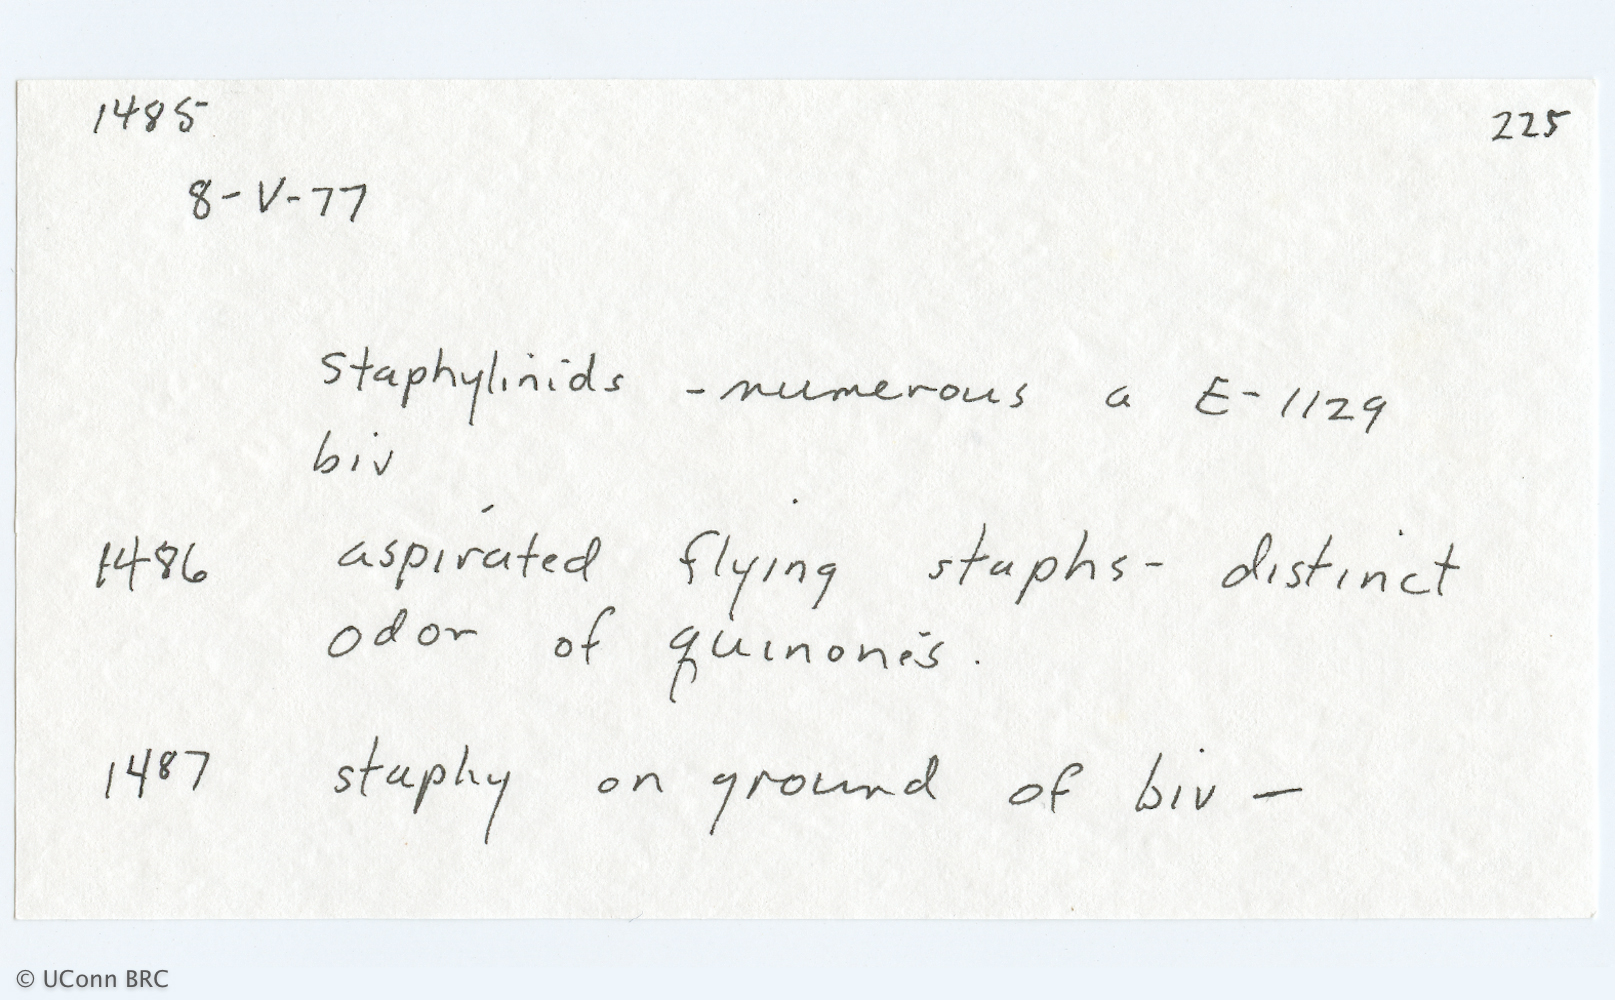 1485 225
8-V-77
Staphylinids - numerous a E-1129
biv
1486 aspirated flying staphs - distinct
odor of quinones.
1487 staphy on ground of biv —
© UConn BRC